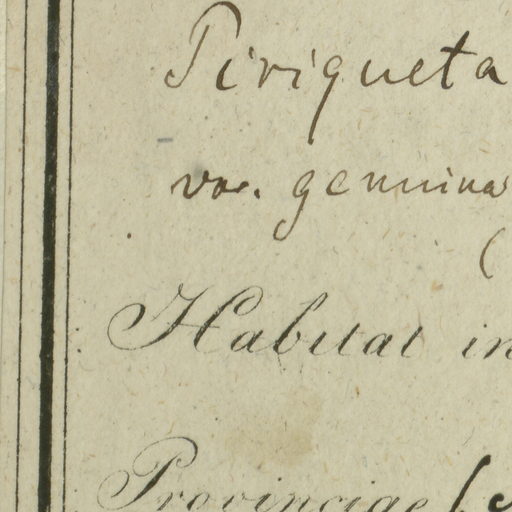 Piriqueta
var. genuina
(
Habitat in
Provinciae